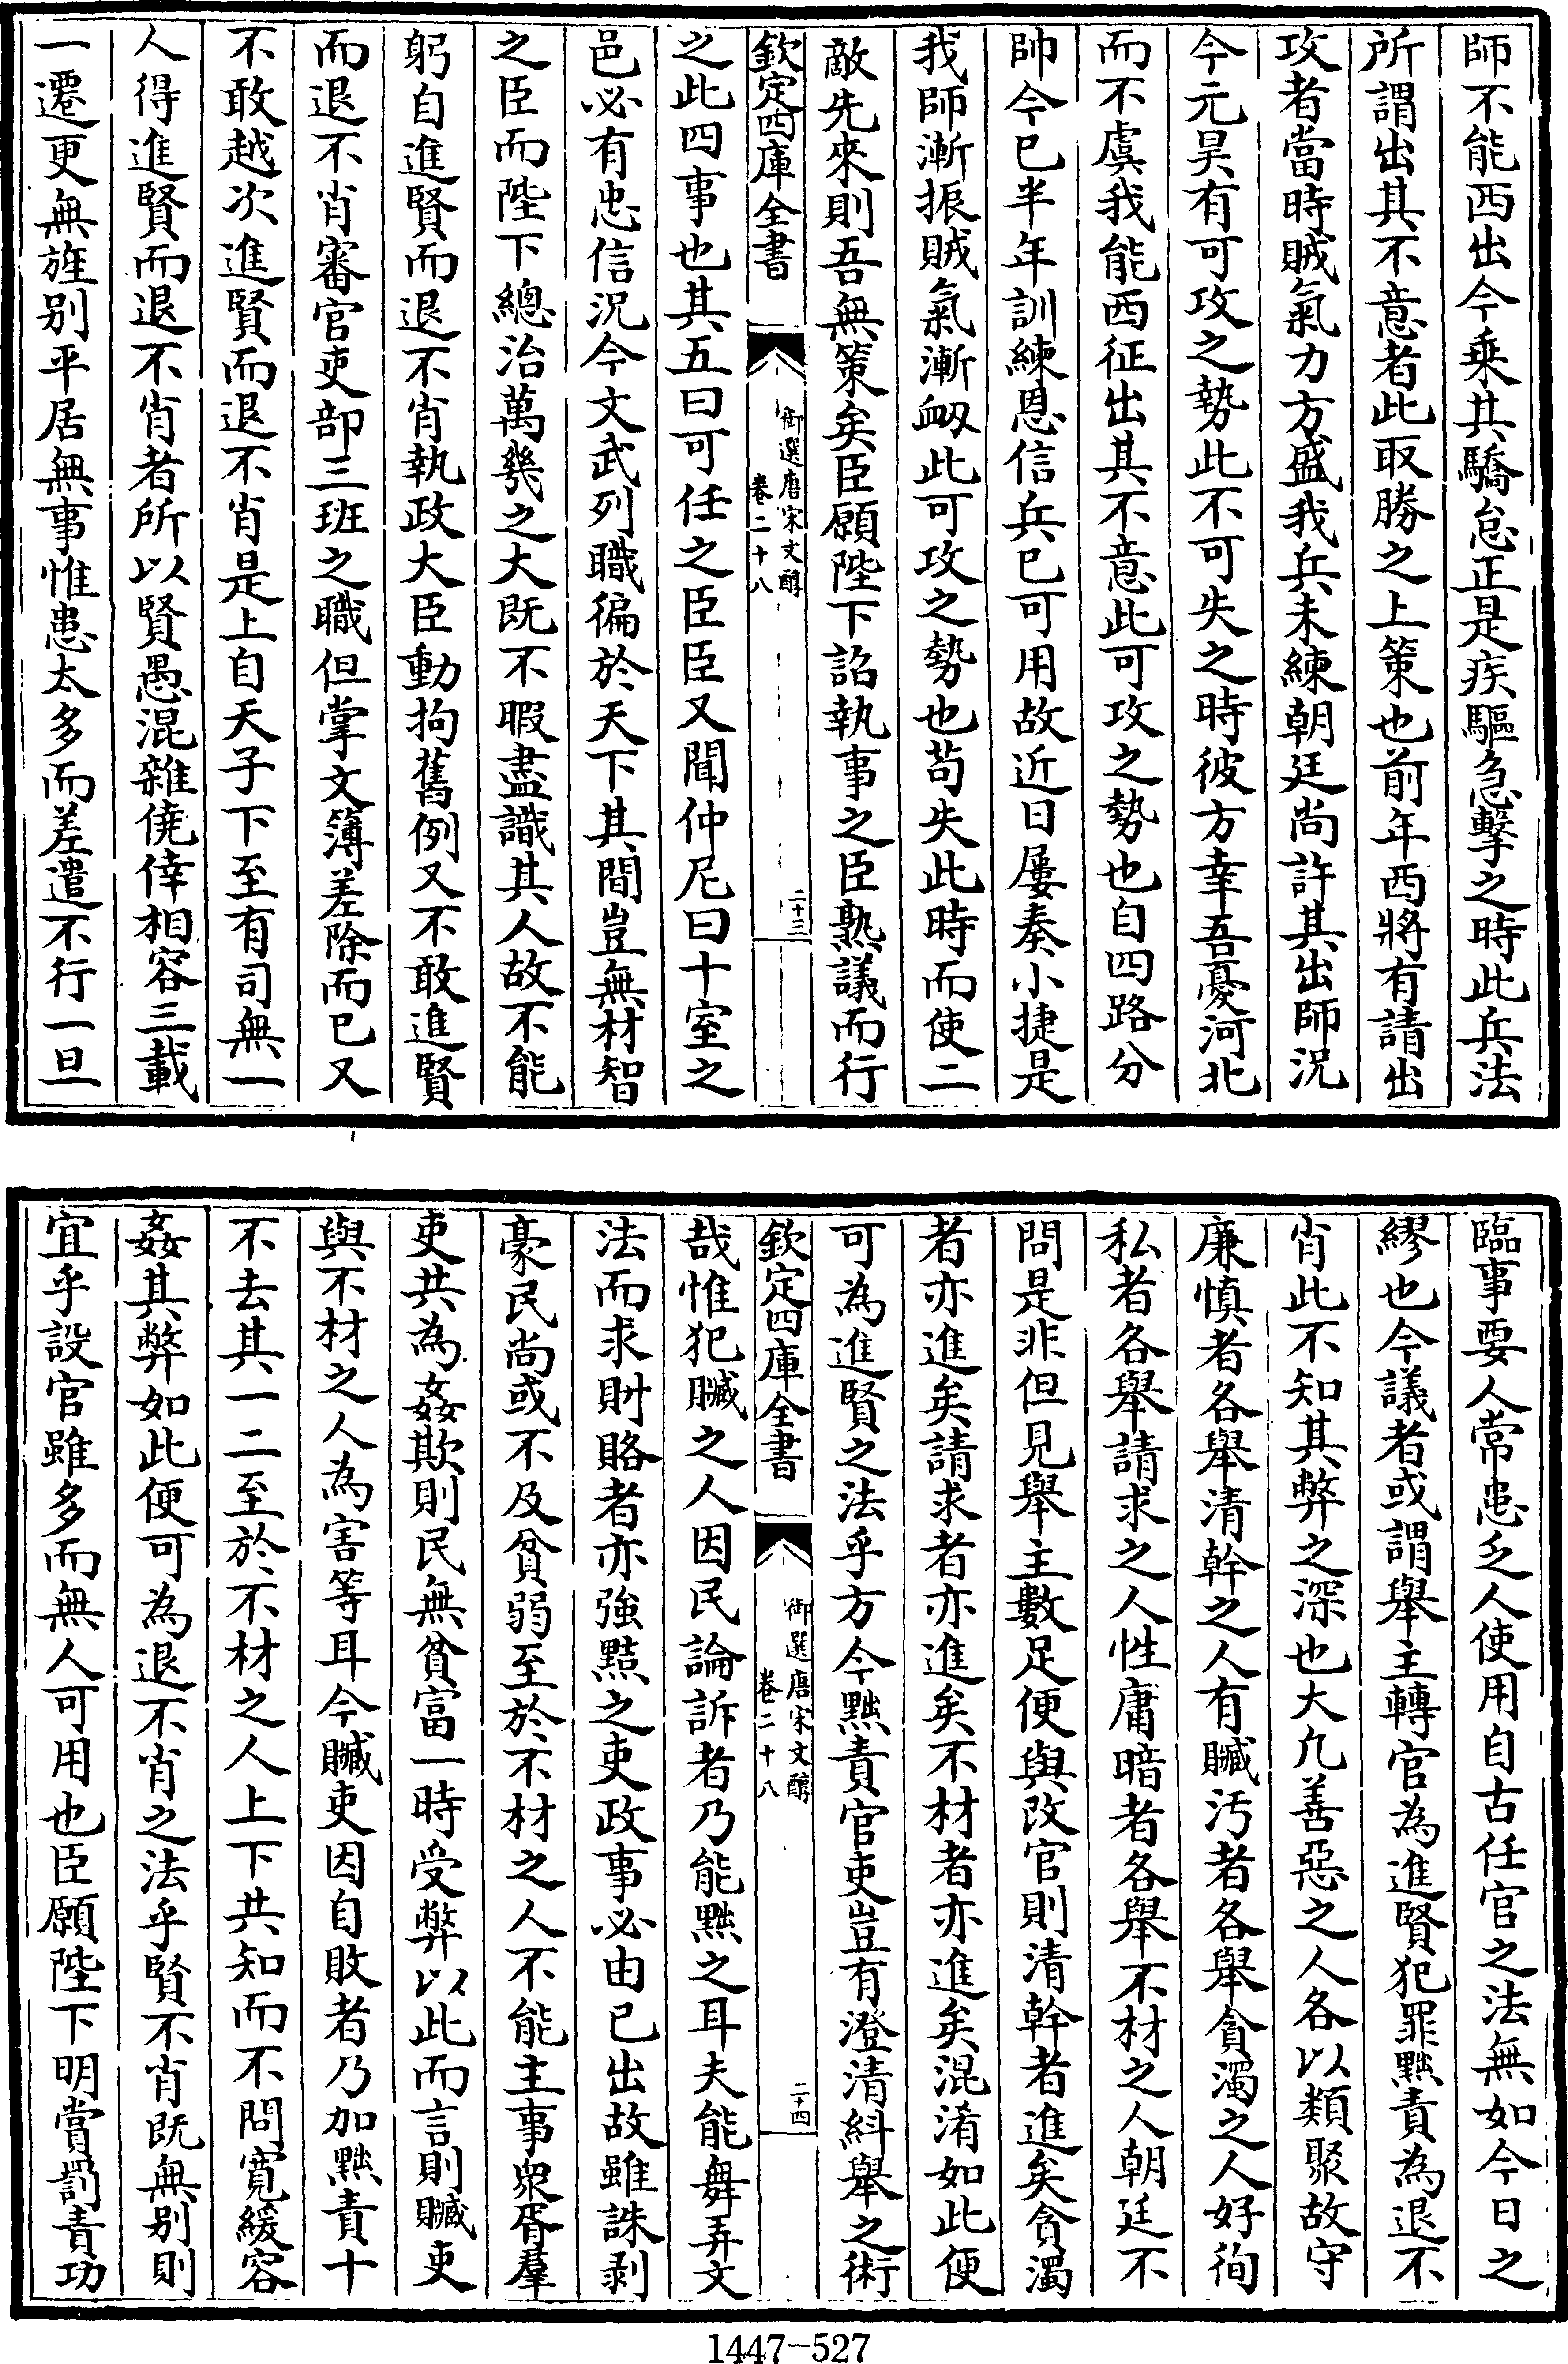 師不能西出今乗其驕怠正是疾驅急擊之時此兵法
所謂出其不意者此取勝之上策也前年西將有請出
攻者當時賊氣力方盛我兵未練朝廷尚許其出師況
今元昊有可攻之勢此不可失之時彼方幸吾憂河北
而不虞我能西征出其不意此可攻之勢也自四路分
帥今已半年訓練恩信兵已可用故近日屢奏小捷是
我師漸振賊氣漸衂此可攻之勢也苟失此時而使二
敵先來則吾無策矣臣願陛下詔執事之臣熟議而行
欽定四庫全書
御選唐宋文醇
卷二十八
二十三
之此四事也其五曰可任之臣臣又聞仲尼曰十室之
邑必有忠信況今文武列職徧於天下其間豈無材智
之臣而陛下總治萬幾之大既不暇盡識其人故不能
躬自進賢而退不肖執政大臣動拘舊例又不敢進賢
而退不肖審官吏部三班之職但掌文簿差除而已又
不敢越次進賢而退不肖是上自天子下至有司無一
人得進賢而退不肖者所以賢愚混雜僥倖相容三載
一遷更無旌别平居無事惟患太多而差遣不行一旦
臨事要人常患乏人使用自古任官之法無如今日之
繆也今議者或謂舉主轉官為進賢犯罪黜責為退不
肖此不知其弊之深也大凢善惡之人各以類聚故守
廉慎者各舉清幹之人有贓汚者各舉貪濁之人好徇
私者各舉請求之人性庸暗者各舉不材之人朝廷不
問是非但見舉主數足便與改官則清幹者進矣貪濁
者亦進矣請求者亦進矣不材者亦進矣混淆如此便
可為進賢之法乎方今黜責官吏豈有澄清糾舉之術
欽定四庫全書
御選唐宋文醇
卷二十八
二十四
哉惟犯贓之人因民論訴者乃能黜之耳夫能舞弄文
法而求財賂者亦強黠之吏政事必由已出故雖誅剥
豪民尚或不及貧弱至於不材之人不能主事衆胥羣
吏共為姦欺則民無貧富一時受弊以此而言則贓吏
與不材之人為害等耳今贓吏因自敗者乃加黜責十
不去其一二至於不材之人上下共知而不問寛緩容
姦其弊如此便可為退不肖之法乎賢不肖既無别則
宜乎設官雖多而無人可用也臣願陛下明賞罰責功
1447-527